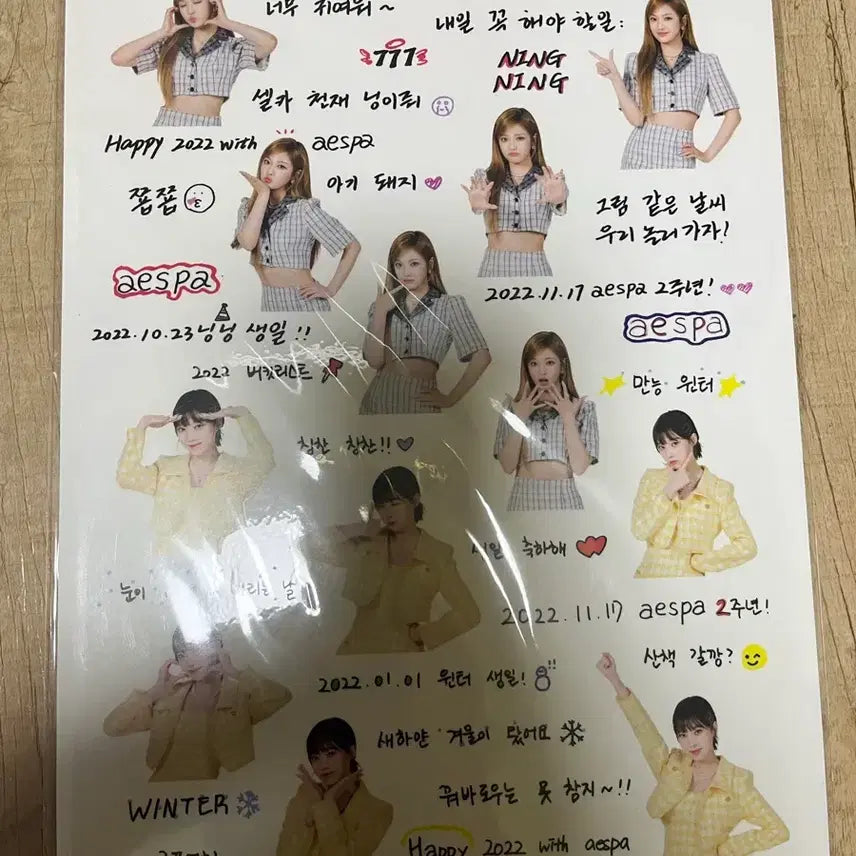 너무 귀여워~
내일 꼭 해야 할일:
777
NING
NING
셀카 천재 닝이줘
Happy 2022 with aespa
쫍쫍
아기 돼지
그럼 같은 날씨
우리 놀러가자!
aespa
2022.11.17 aespa 2주년!
2022.10.23 닝닝 생일!!
aespa
2022 버킷리스트
만능 윈터
칭찬 칭찬!!
축하해
눈이
날
2022.11.17 aespa 2주년!
산책 갈깡?
2022.01.01 윈터 생일!
새하얀 겨울이 왔어요
WINTER
꿔바로우는 못 참지~!!
Happy 2022 with aespa